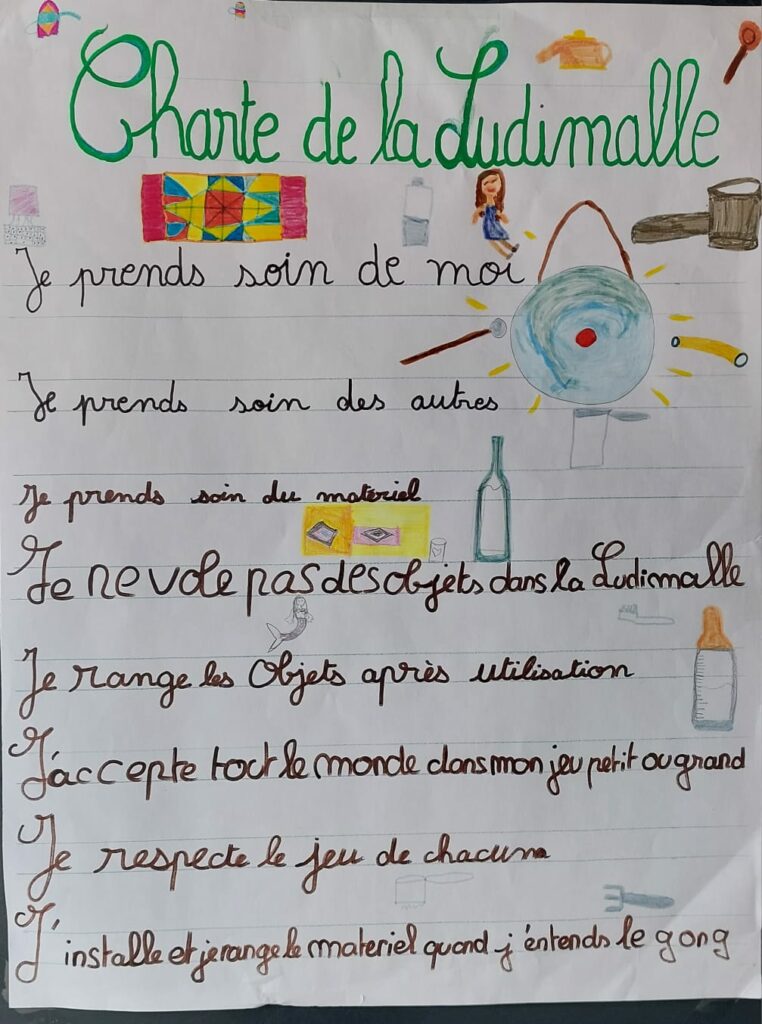 Charte de la Ludimalle
Je prends soin de moi
Je prends soin des autres
Je prends soin du materiel
Je ne vole pas des objets dans la Ludimalle
Je range les Objets après utilisation
J'accepte tout le monde dans mon jeu petit ou grand
Je respecte le jeu de chacun
J'installe et je range le materiel quand j'entends le gong